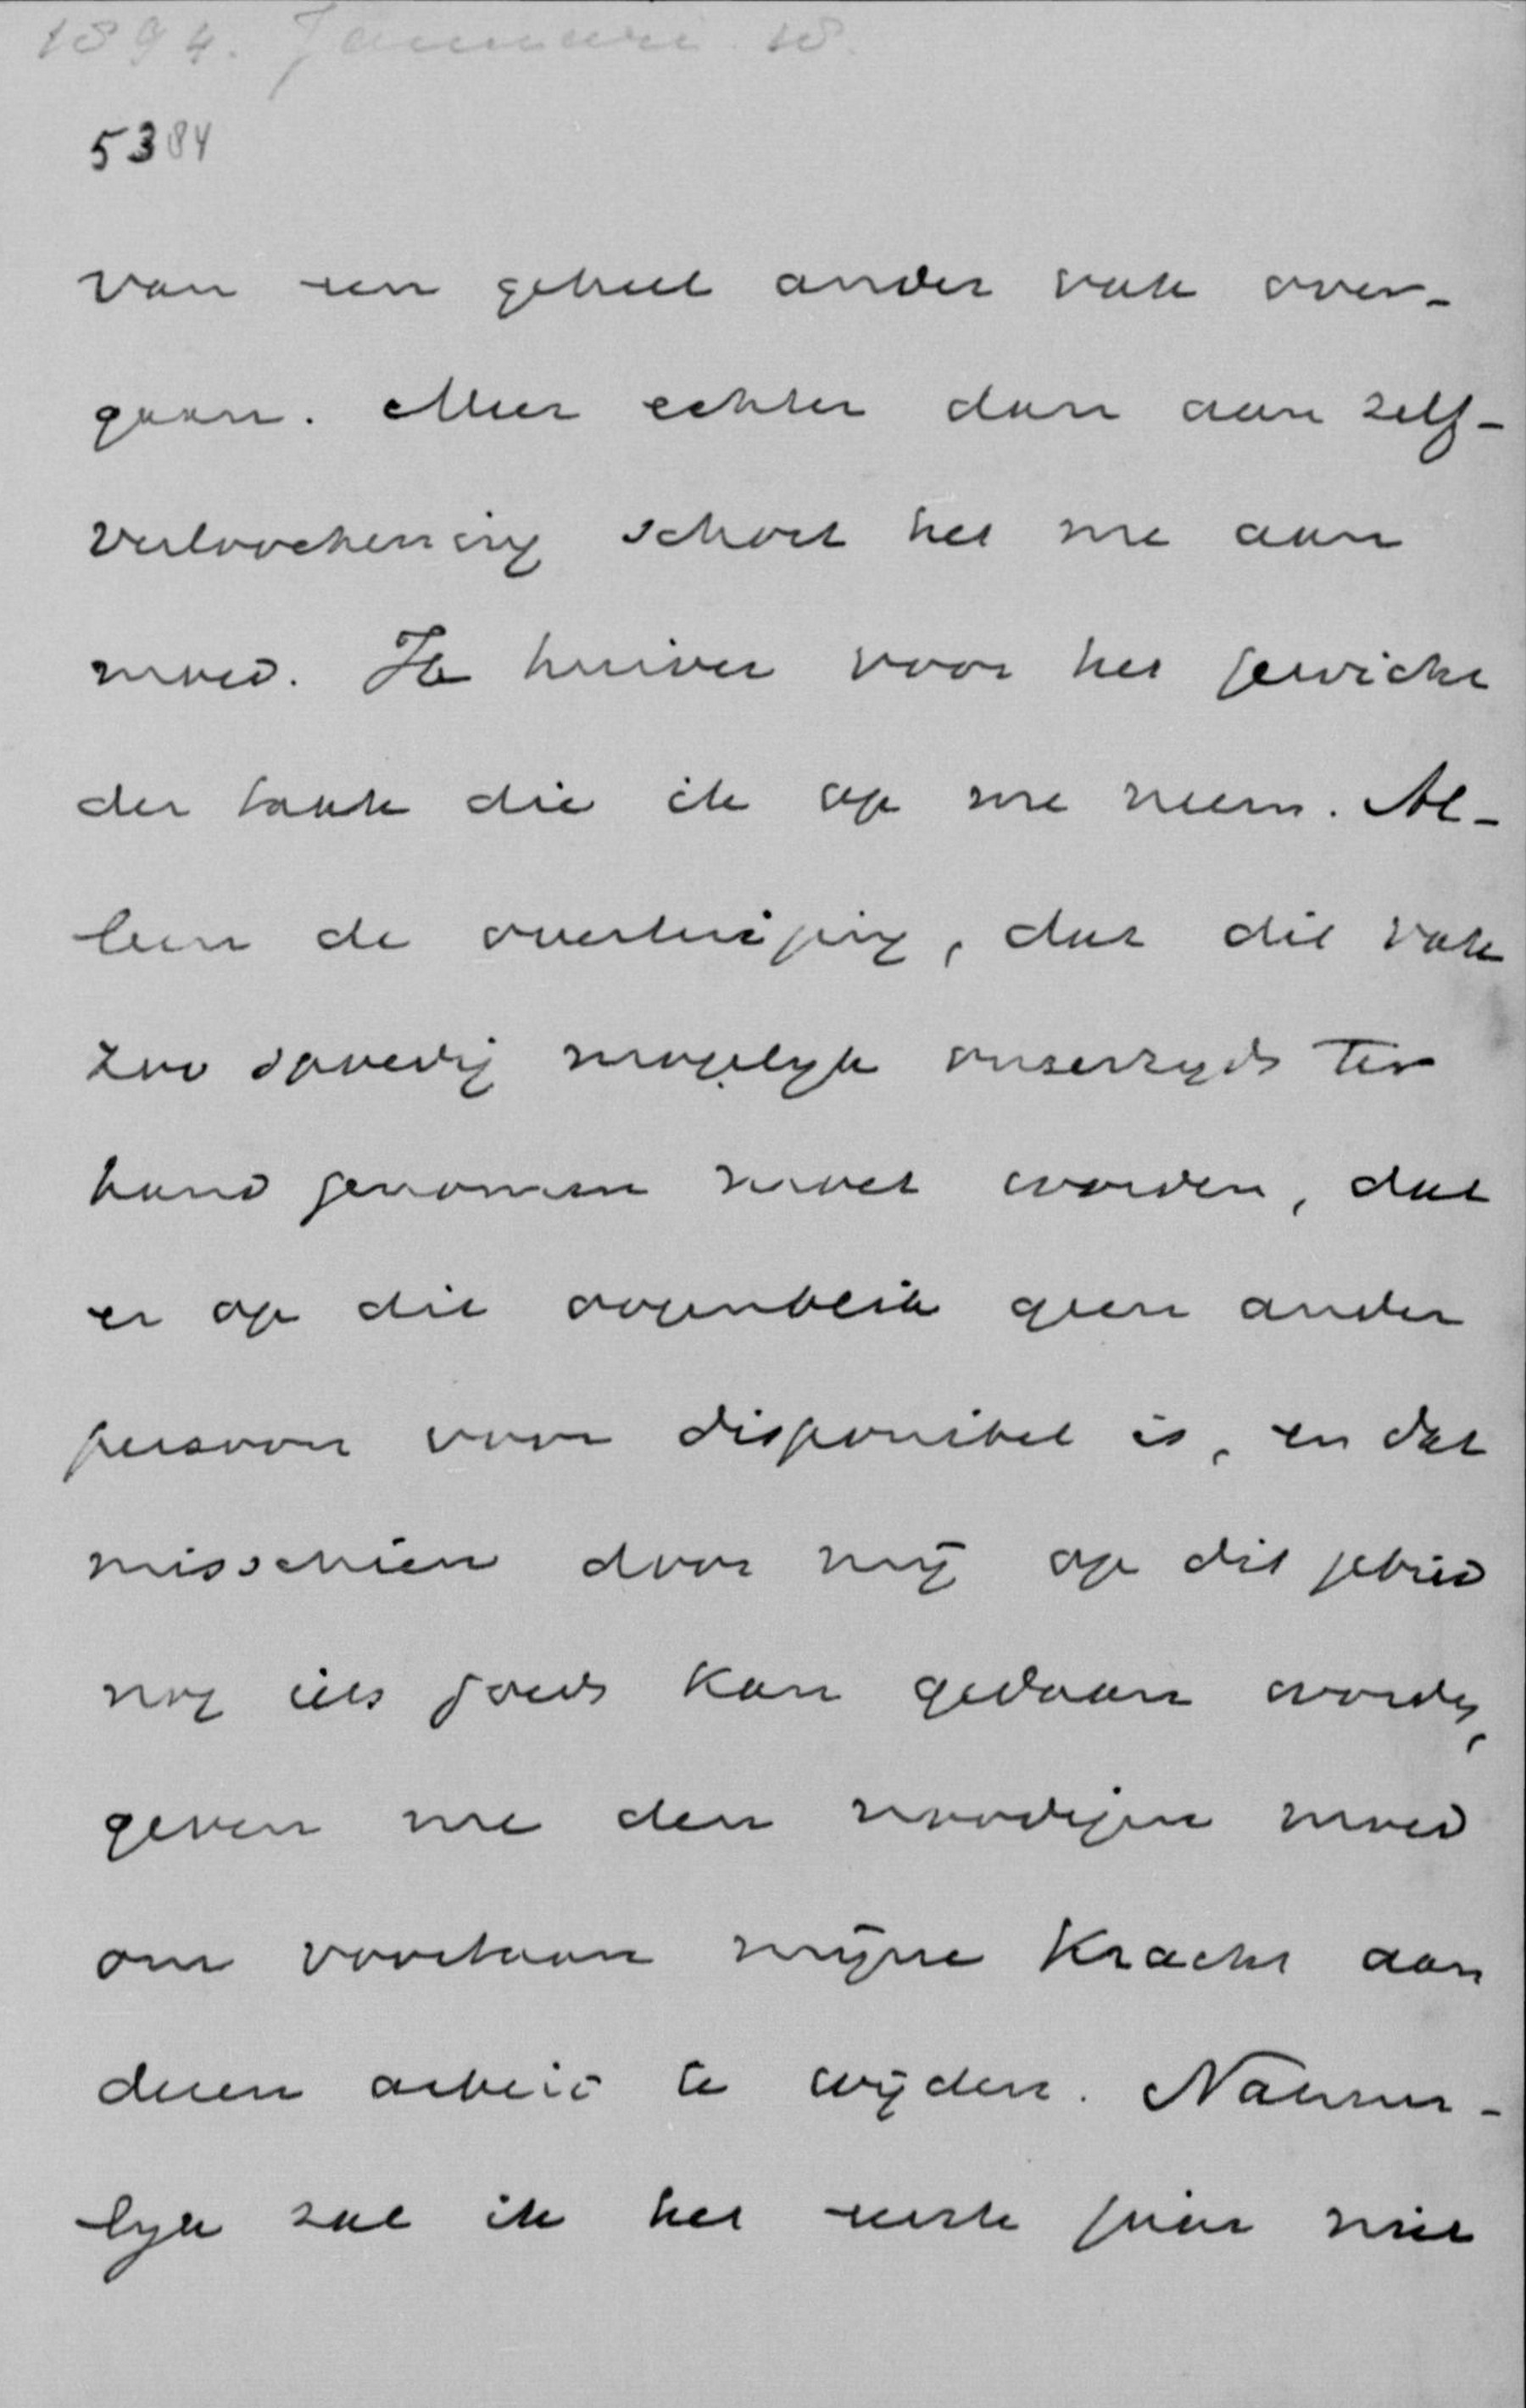 1894. Januari. 18.
5384
van een geheel ander vak over-
gaan. Meer echter dan aan zelf-
verloochening schort het me aan
moed. Ik huiver voor het gewicht
der taak die ik op me neem. Al-
leen de overtuiging, dat dit vak
zoo spoedig mogelyk onzerzyds ter
hand genomen moet worden, dat
er op dit oogenblik geen ander
persoon voor disponibel is, en dat
misschien door mij op dit gebied
nog iets goeds kan gedaan worden,
geven me den noodigen moed
om voortaan mijne kracht aan
dezen arbeid te wijden. Natuur-
lyk zal ik het eerste jaar niet